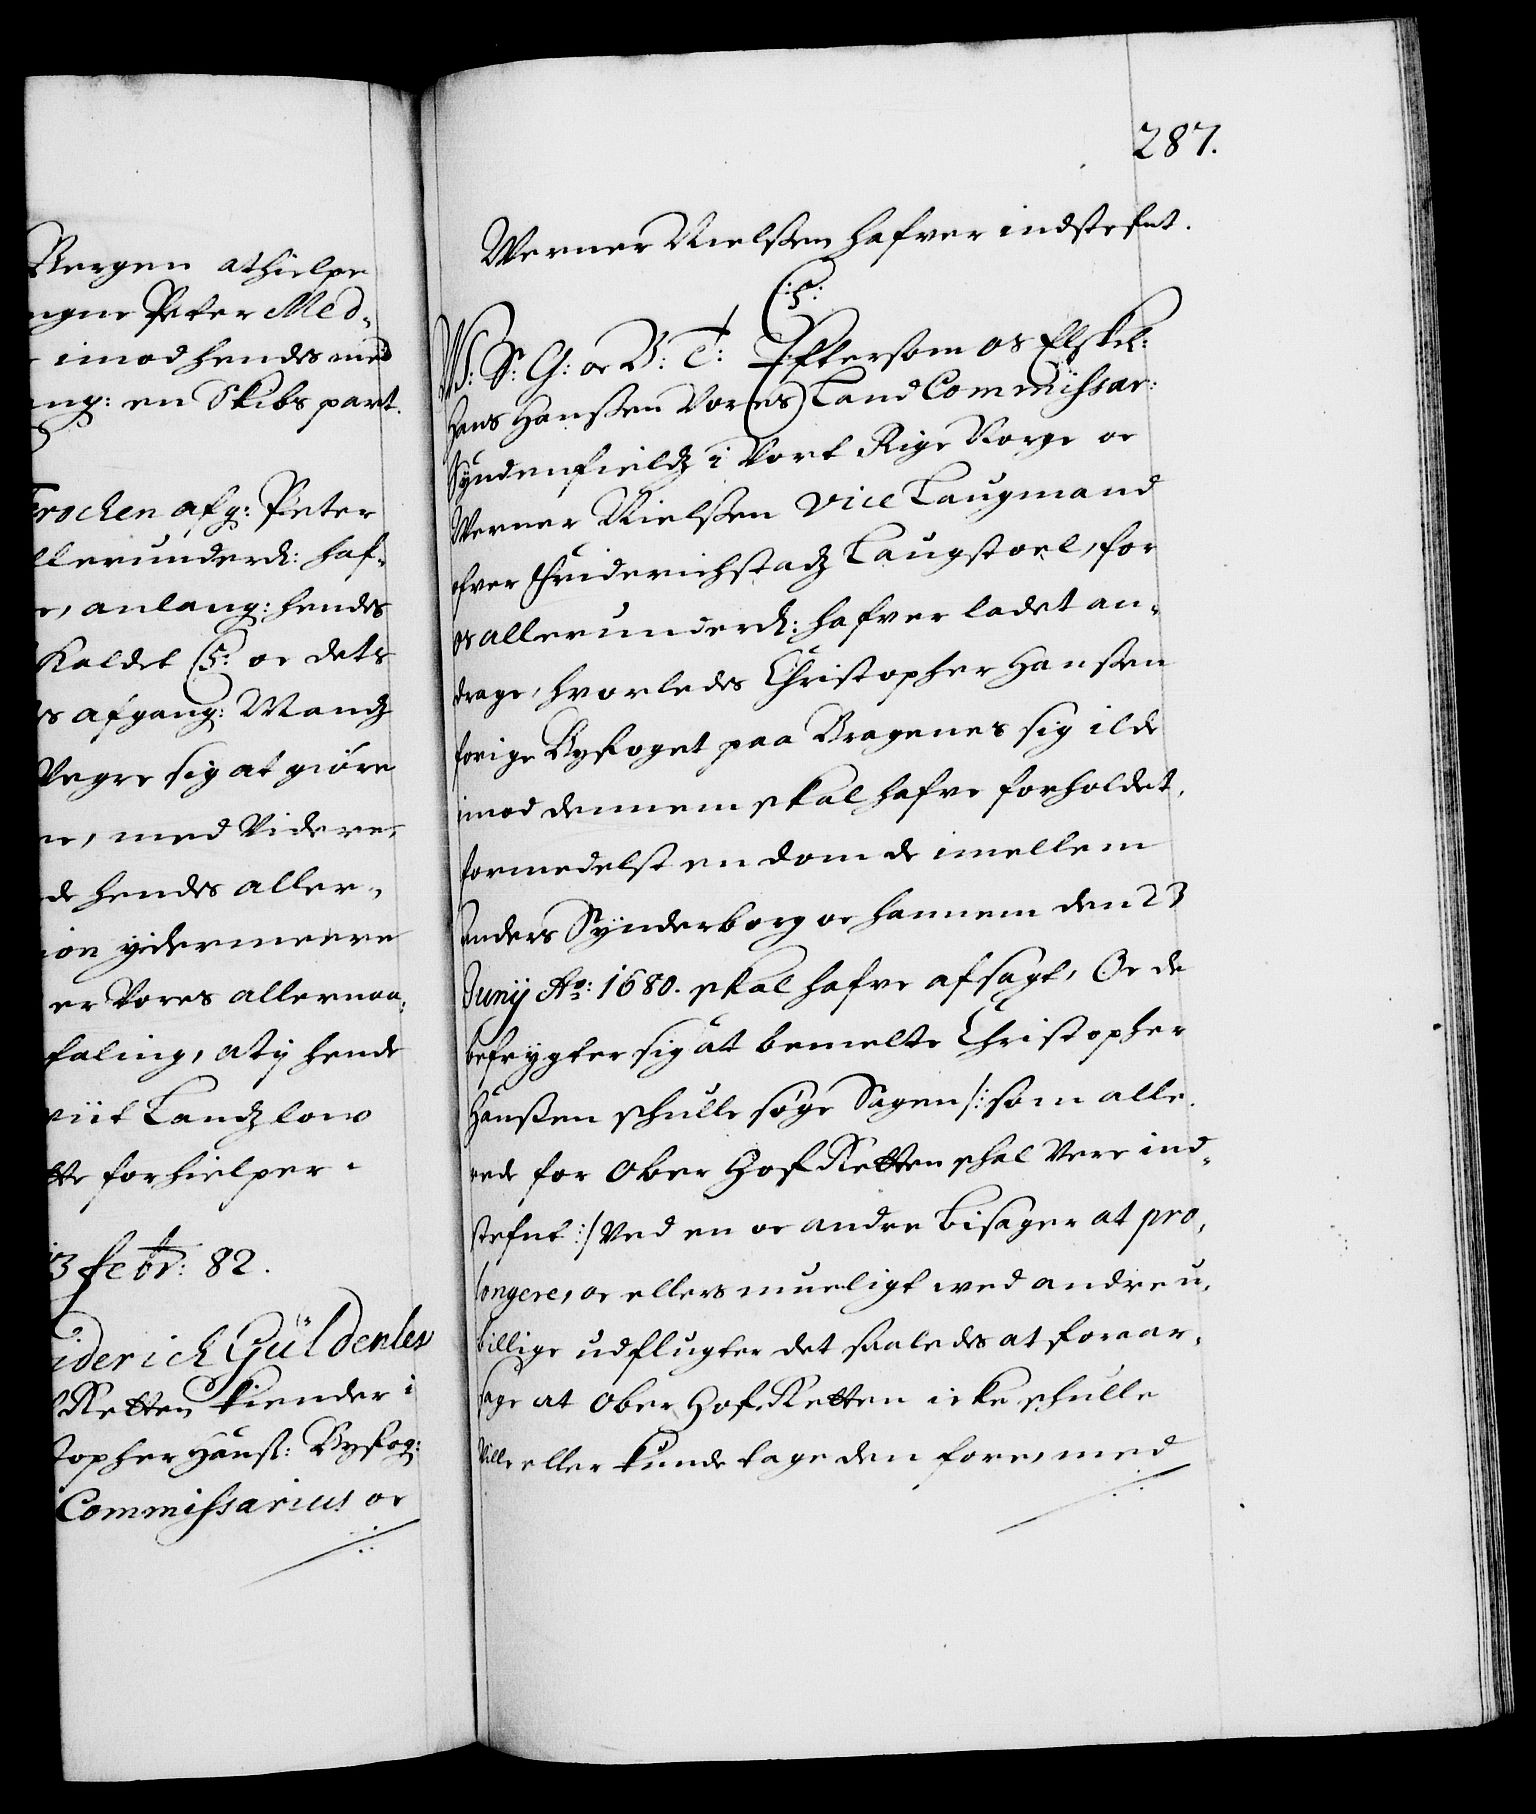 Bergen at hielpe
Peter Med-
imod hendes med
ang: en Skibs part.
Trochen afg: Peter
allerunderd: haf-
anlang: hendes
Kaldet (5: oc dets
afgang: Mands
Vegre sig at giöre
med Videre,
hendes aller-
ydermeere
er Vores allernaa-
faling, at y hende
Landzlow
tte forhielper.
13 febr: 82.
iderich Güldenlew
Retten kiender i
topher Hanß: Byfog:
Commissarius oc
287.
Werner Nielßen hafver indstefnt.
(:5:
W: S: G: oc V: T: Eftersom os Elskel:
Hans Hanßen Vores Land Commissar:
Syndenfieldz i Vort Rige Norge oc
Werner Nielßen Vice Laugmand
ofver Friderichstadz Laugstoel, for
os allerunderd: hafver ladet an-
drage, hvorledes Christopher Hansen
forige Byfoget paa Bragenes sig ilde
imod dennem skal hafve forholdet,
formedelst en dom de imellem
Anders Synderborg oc hannem den 23
Junij Ao: 1680. skal hafve afsagt, Oc de
befrygter sig at bemelte Christopher
Hanßen schulle söge Sagen /: som alle-
rede for Ober Hof Retten schal Vere ind-
stefnt :/ Ved en oc anden bisager at pro-
longere, oc ellers mueligt wed andre u-
billige udflugter det saaledes at foraar-
sage at Ober Hof Retten icke schulle
Ville eller kunde tage den fore, med